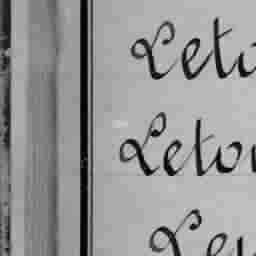 Leto
Letou
Leu